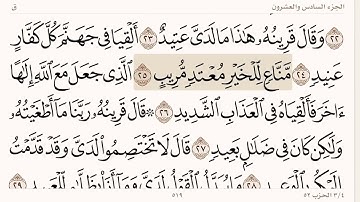 الجزء السادس والعشرون ق
٢٢ وَقَالَ قَرِينُهُۥ هَٰذَا مَا لَدَىَّ عَتِيدٌ ٢٣ أَلْقِيَا فِى جَهَنَّمَ كُلَّ كَفَّارٍ
عَنِيدٍ ٢٤ مَّنَّاعٍ لِّلْخَيْرِ مُعْتَدٍ مُّرِيبٍ ٢٥ ٱلَّذِى جَعَلَ مَعَ ٱللَّهِ إِلَٰهًا
ءَاخَرَ فَأَلْقِيَاهُ فِى ٱلْعَذَابِ ٱلشَّدِيدِ ٢٦ ۞ قَالَ قَرِينُهُۥ رَبَّنَا مَآ أَطْغَيْتُهُۥ
وَلَٰكِن كَانَ فِى ضَلَٰلٍۭ بَعِيدٍ ٢٧ قَالَ لَا تَخْتَصِمُوا۟ لَدَىَّ وَقَدْ قَدَّمْتُ
إِلَيْكُم بِٱلْوَعِيدِ ٢٨ مَا يُبَدَّلُ ٱلْقَوْلُ لَدَىَّ وَمَآ أَنَا۠ بِظَلَّٰمٍ لِّلْعَبِيدِ ٢٩
٣/٤ الحزب ٥٢ ٥١٩